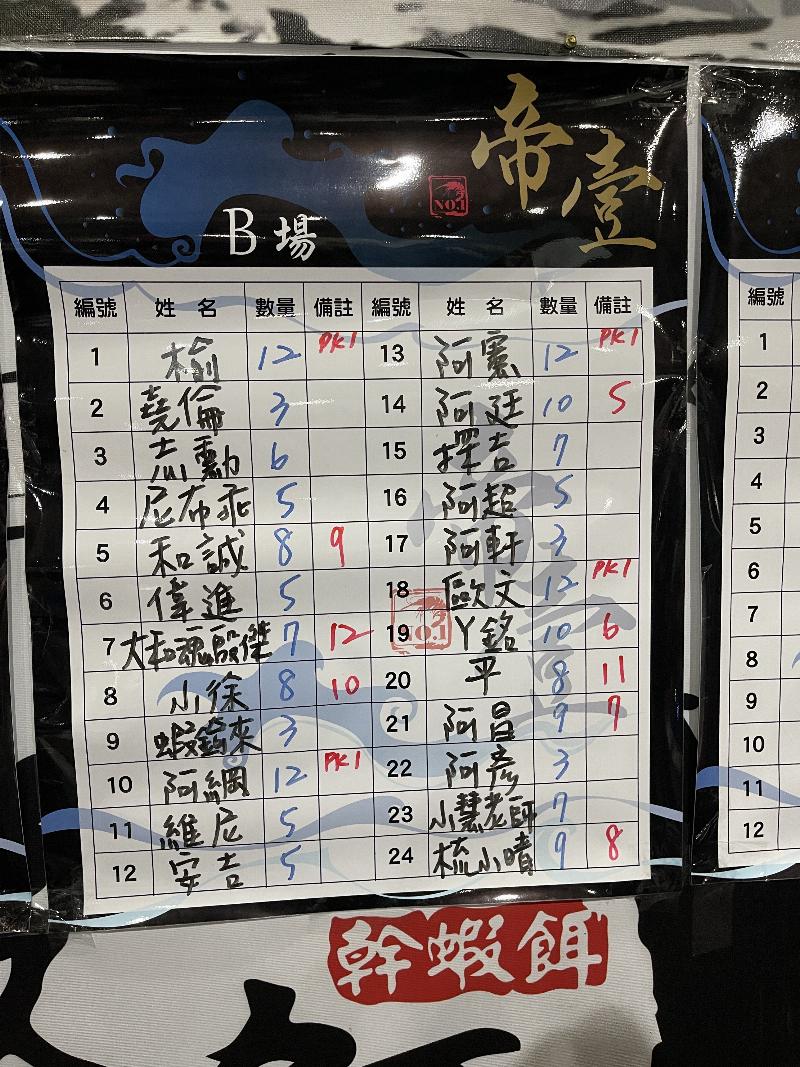 帝壹
NO.1
B場
編號 姓名 數量 備註 編號 姓名 數量 備註
1 榆 12 PK1 13 阿寰 12 PK1
2 堯倫 3 14 阿廷 10 5
3 志勳 6 15 擇吉 7
4 尼布乖 5 16 阿超 5
5 和誠 8 9 17 阿軒 3
6 偉進 5 18 歐文 12 PK1
7 大和魂殷傑 7 12 19 丫銘 10 6
8 小徐 8 10 20 平 8 11
9 蝦鎗來 3 21 阿昌 9 7
10 阿綱 12 PK1 22 阿彥 3
11 維尼 5 23 小慧老師 7
12 安吉 5 24 梳小晴 9 8
帝壹
NO.1
編號
1
2
3
4
5
6
7
8
9
10
11
12
幹蝦餌